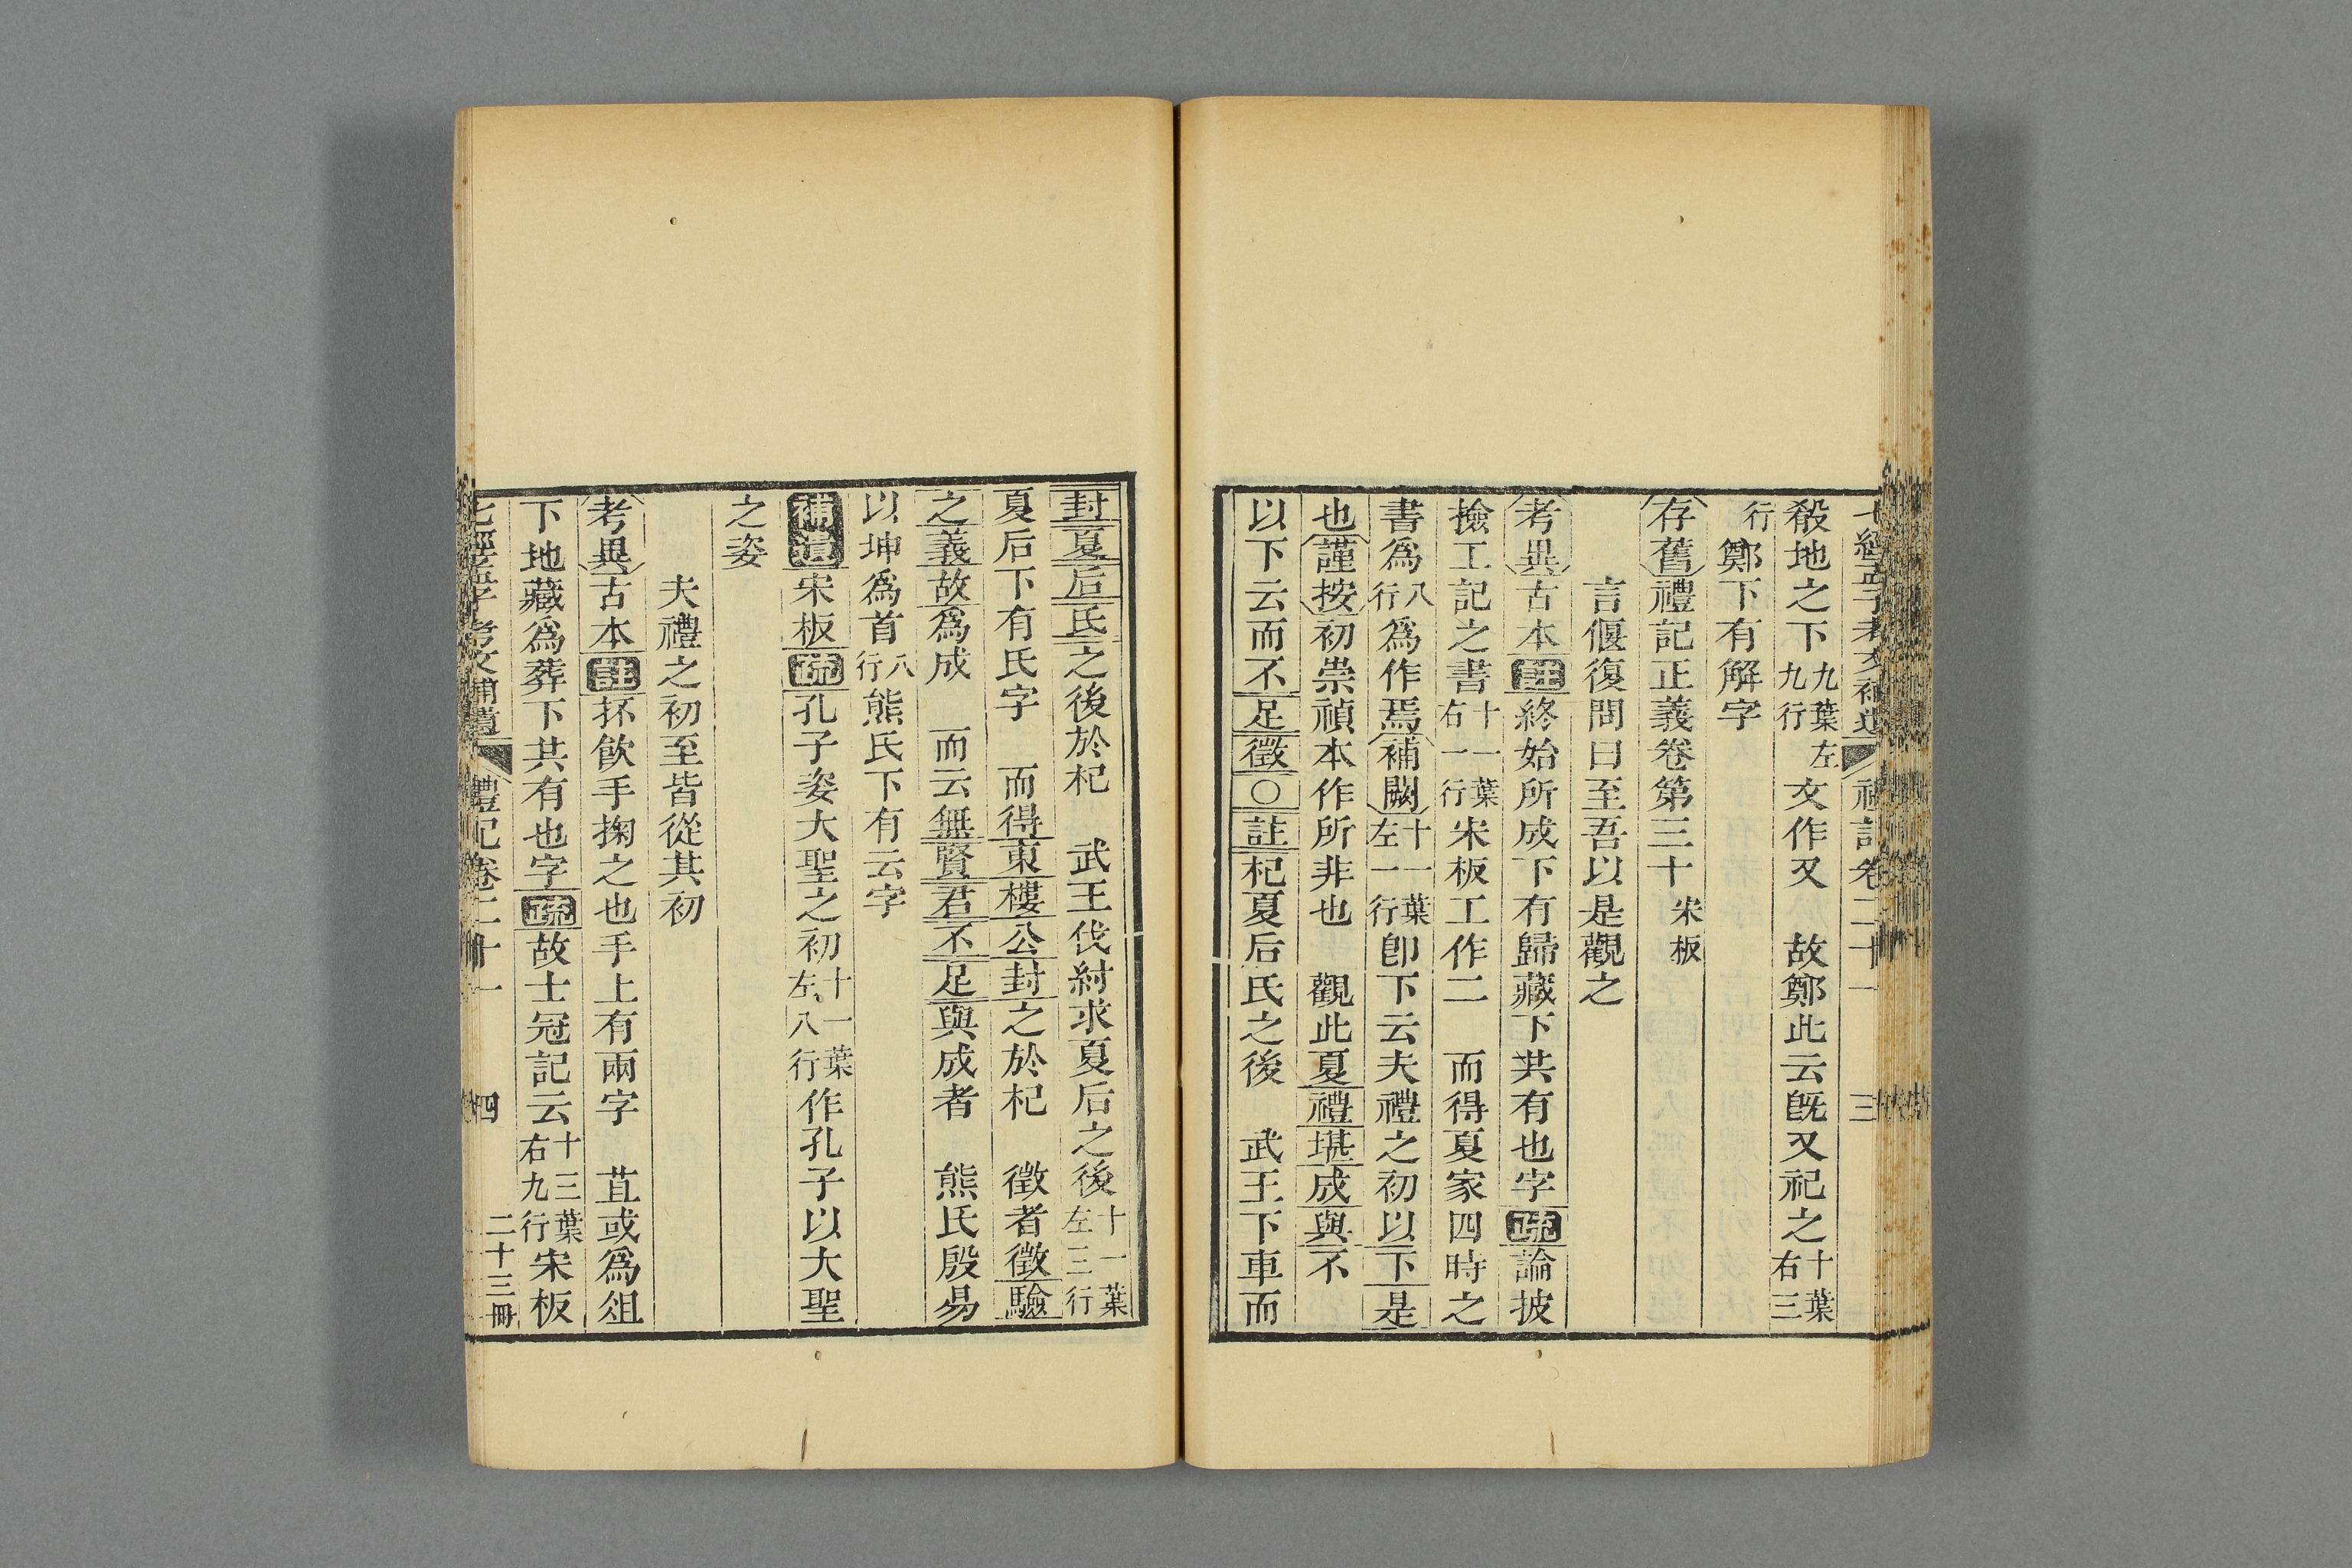 七經孟子考文補遺 禮記卷二十一 三
殺地之下九葉左九行文作又 故鄭此云旣又祀之十葉右三
行鄭下有解字
存舊禮記正義卷第三十宋板
言偃復問曰至吾以是觀之
考異古本註終始所成下有歸藏下共有也字疏論披
撿工記之書十一葉右一行宋板工作二 而得夏家四時之
書爲八行爲作焉補闕十一葉左一行卽下云夫禮之初以下是
也謹按初崇禎本作所非也 觀此夏禮堪成與不
以下云而不足徵○註杞夏后氏之後 武王下車而
封夏后氏之後於杞 武王伐紂求夏后之後十一葉左三行
夏后下有氏字 而得東樓公封之於杞 徵者徵驗
之義故爲成 而云無賢君不足與成者 熊氏殷易
以坤爲首八行熊氏下有云字
補遺宋板疏孔子姿大聖之初十一葉左八行作孔子以大聖
之姿
夫禮之初至皆從其初
考異古本註抔飮手掬之也手上有兩字 苴或爲俎
下地藏爲葬下共有也字疏故士冠記云十三葉右九行宋板
七經孟子考文補遺 禮記卷二十一 四 二十三冊